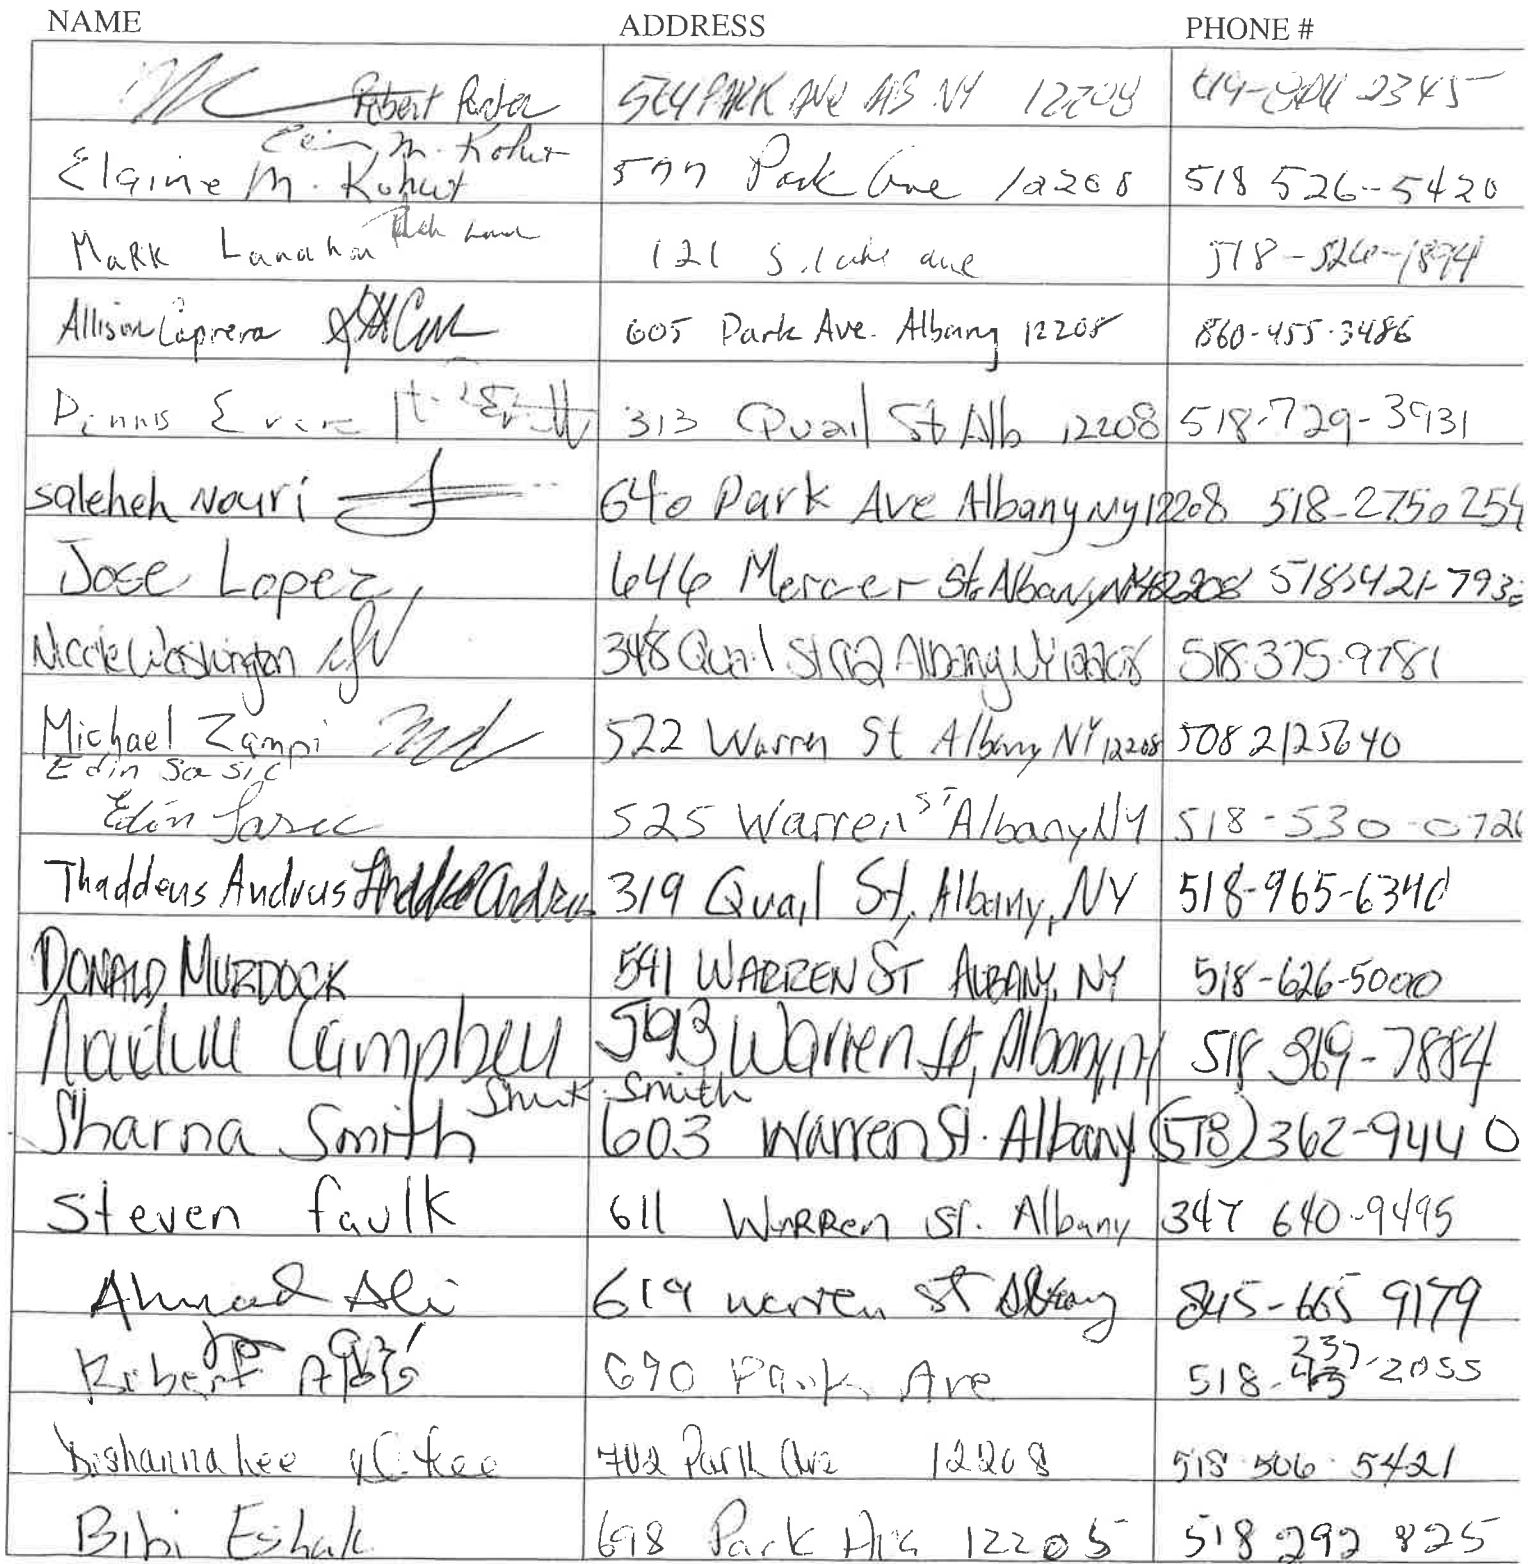 NAME ADDRESS PHONE #
Robert Porter PARK Ave NY 12208 2345
M. Kohut
Elaine M. Kohut 577 Park Ave 12208 518 526-5420
Mark Lanahan 121 S. lake ave 518-526-1894
Allison Caprera 605 Park Ave. Albany 12208 860-455-3486
Dennis 313 Quail St Alb 12208 518-729-3931
Saleheh Nouri 640 Park Ave Albany NY 12208 518-2750254
Jose Lopez 646 Mercer St. Albany NY 12208 518-421-793
Nicole Washington 348 Quail St Albany NY 12208 518-375-9781
Michael Zampi 522 Warren St Albany NY 12208 508 2125640
Edin Sasic
Edin Sasic 525 Warren ST Albany NY 518-530-0726
Thaddeus Andrus Thaddeus Andrus 319 Quail St, Albany, NY 518-965-6340
DONALD MURDOCK 541 WARREN ST ALBANY, NY 518-626-5000
Campbell 593 Warren St, Albany, NY 518 369-7884
Smith
Sharna Smith 603 Warren St. Albany (518) 362-9440
Steven faulk 611 WARRen St. Albany 347 640-9495
Ahmad Ali 619 warren st Albany 845-665 9179
Robert 690 Park Ave 518- 237-2055
Lee 702 Park Ave 12208 518-506-5421
Bibi Eshak 698 Park Ave 12205 518 292 825